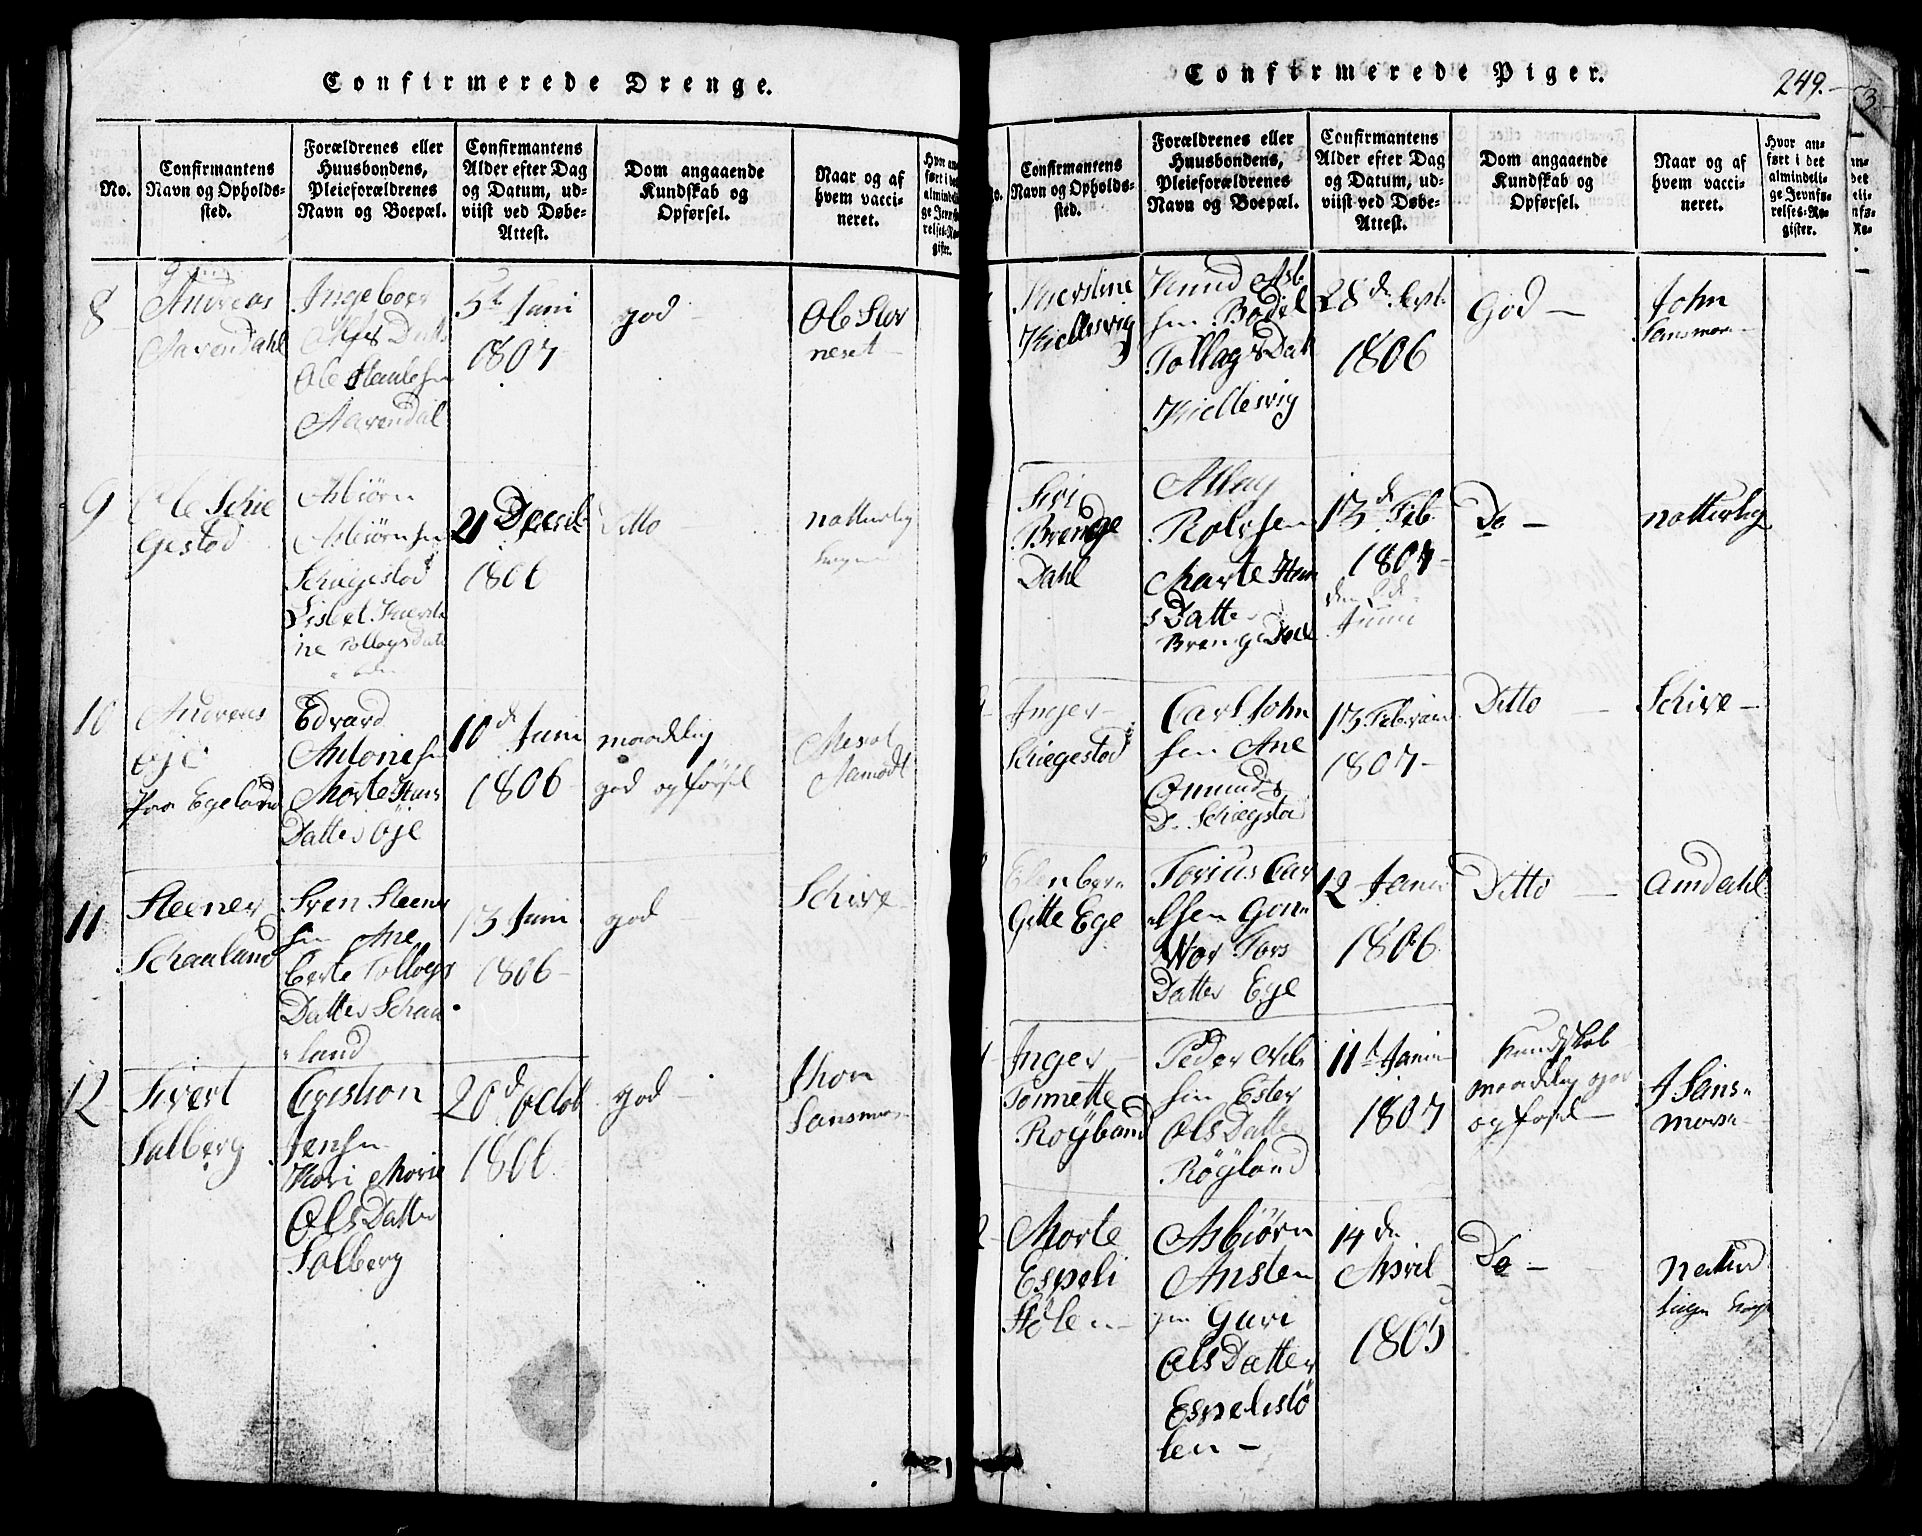 Confirmerede Drenge.
No.
Confirmantens
Navn og Opholds-
sted.
Forældrenes eller
Huusbondens,
Pleieforældrenes
Navn og Boepæl.
Confirmantens
Alder efter Dag
og Datum, ud-
viist ved Døbe-
Attest.
Dom angaaende
Kundskab og
Opførsel.
Naar og af
hvem vacci-
neret.
8
Andreas
Aavendahl
Ingeboer
Ole
Aavendal
5t Juni
1807
god -
Ole Stor
neset -
9
Ole Schie
Gestod
Asbiørn
Asbiørnsen
Schiegestod
Sisbet Kierst
ine TollagsDatt
21 Deceb
1806
Ditto
natturlig
10
Andreas
Øje
paa Egeland
Edvard
Antonisen
Morte Hans
Datter Øje
10d Juni
1806
maadelig
god opførsel
Aamodt
11
Steener
Schaaland
Sven Steener
sen Ane
Berte Tollags
Datter Schaa
land
13 Juni
1806
god -
Schive -
12
Sivert
Salberg
Cristian
Jensen
Kari Marie
OlsDatter
Salberg
20d octob
1806
god -
Jhon
Sansmon
Confirmerede Piger.
249.
No.
Confirmantens
Navn og Opholds-
sted.
Forældrenes eller
Huusbondens,
Pleieforældrenes
Navn og Boepæl.
Confirmantens
Alder efter Dag
og Datum, ud-
viist ved Døbe-
Attest.
Dom angaaende
Kundskab og
Opførsel.
Naar og af
hvem vacci-
neret.
Hvor an-
ført i det
almindeli-
ge Jevnfø-
relses-Re-
gister.
Kierstine
Kiellesvig
Knud Asb
sen Bodel
Tollags Datt
Kiellesvig
28d Sept.
1806
God -
John
Sansmon
Siri
Brenge
Dahl
Aslag
Rolvsen
Marte Han
s Datter
Brenge Dahl
13d Feb.
1807
Juni
Do -
natturlig
Inger
Schiegestod
Carl John
sen Ane
Omunds
D. Schiegstod
13 Febrari
1807 -
Ditto -
Schive -
Elenber
Gitte Ege
Torius Car
lsen Gon
Wor Tors
Datter Ege
12 Janu
1806
Ditto -
Amdahl
Inger
Tonnette
Røyland
Peder Nil
sen Ester
OlsDatter
Røyland
11t Janu
1807
Kundskab
maadelig god
opførsel -
J Sans
mose
Morte
Espeli
Stølen -
Asbiørn
Ansten
sen Guri
OlsDatter
Espelistø
len -
14 de
April
1805
Do -
Natur
ligen